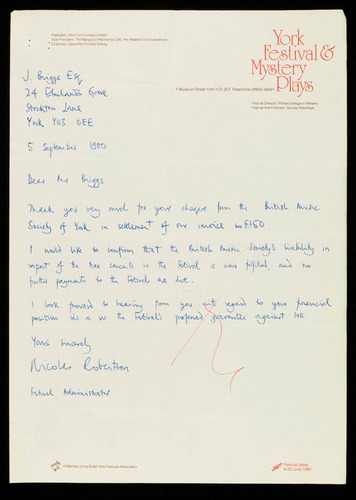 President: HRH The Duchess of Kent
Vice-President: The Marquis of Normanby CBE, Her Majesty's Lord Lieutenant
Chairman: Councillor Richard Oxtoby
York
Festival &
Mystery
Plays
1 Museum Street York YO1 2DT Telephone (0904) 26421
Festival Director: Richard Gregson-Williams
Festival Administrator: Nicolas Robertson
J. Briggs Esq
24 Grove
Stockton Lane
York YO3 0EE
5 September 1980
Dear Mr Briggs
Thank you very much for your cheque from the British Music
Society of York in settlement of our invoice no F150.
I would like to confirm that the British Music Society's liability in
respect of the three concerts in the Festival is now fulfilled and no
further payments to the Festival are due.
I look forward to hearing from you with regard to your financial
position vis a vis the Festival's preferred guarantee against loss.
Yours sincerely
Nicolas Robertson
Festival Administrator
A Member of the British Arts Festivals Association
Festival dates:
6-30 June 1980